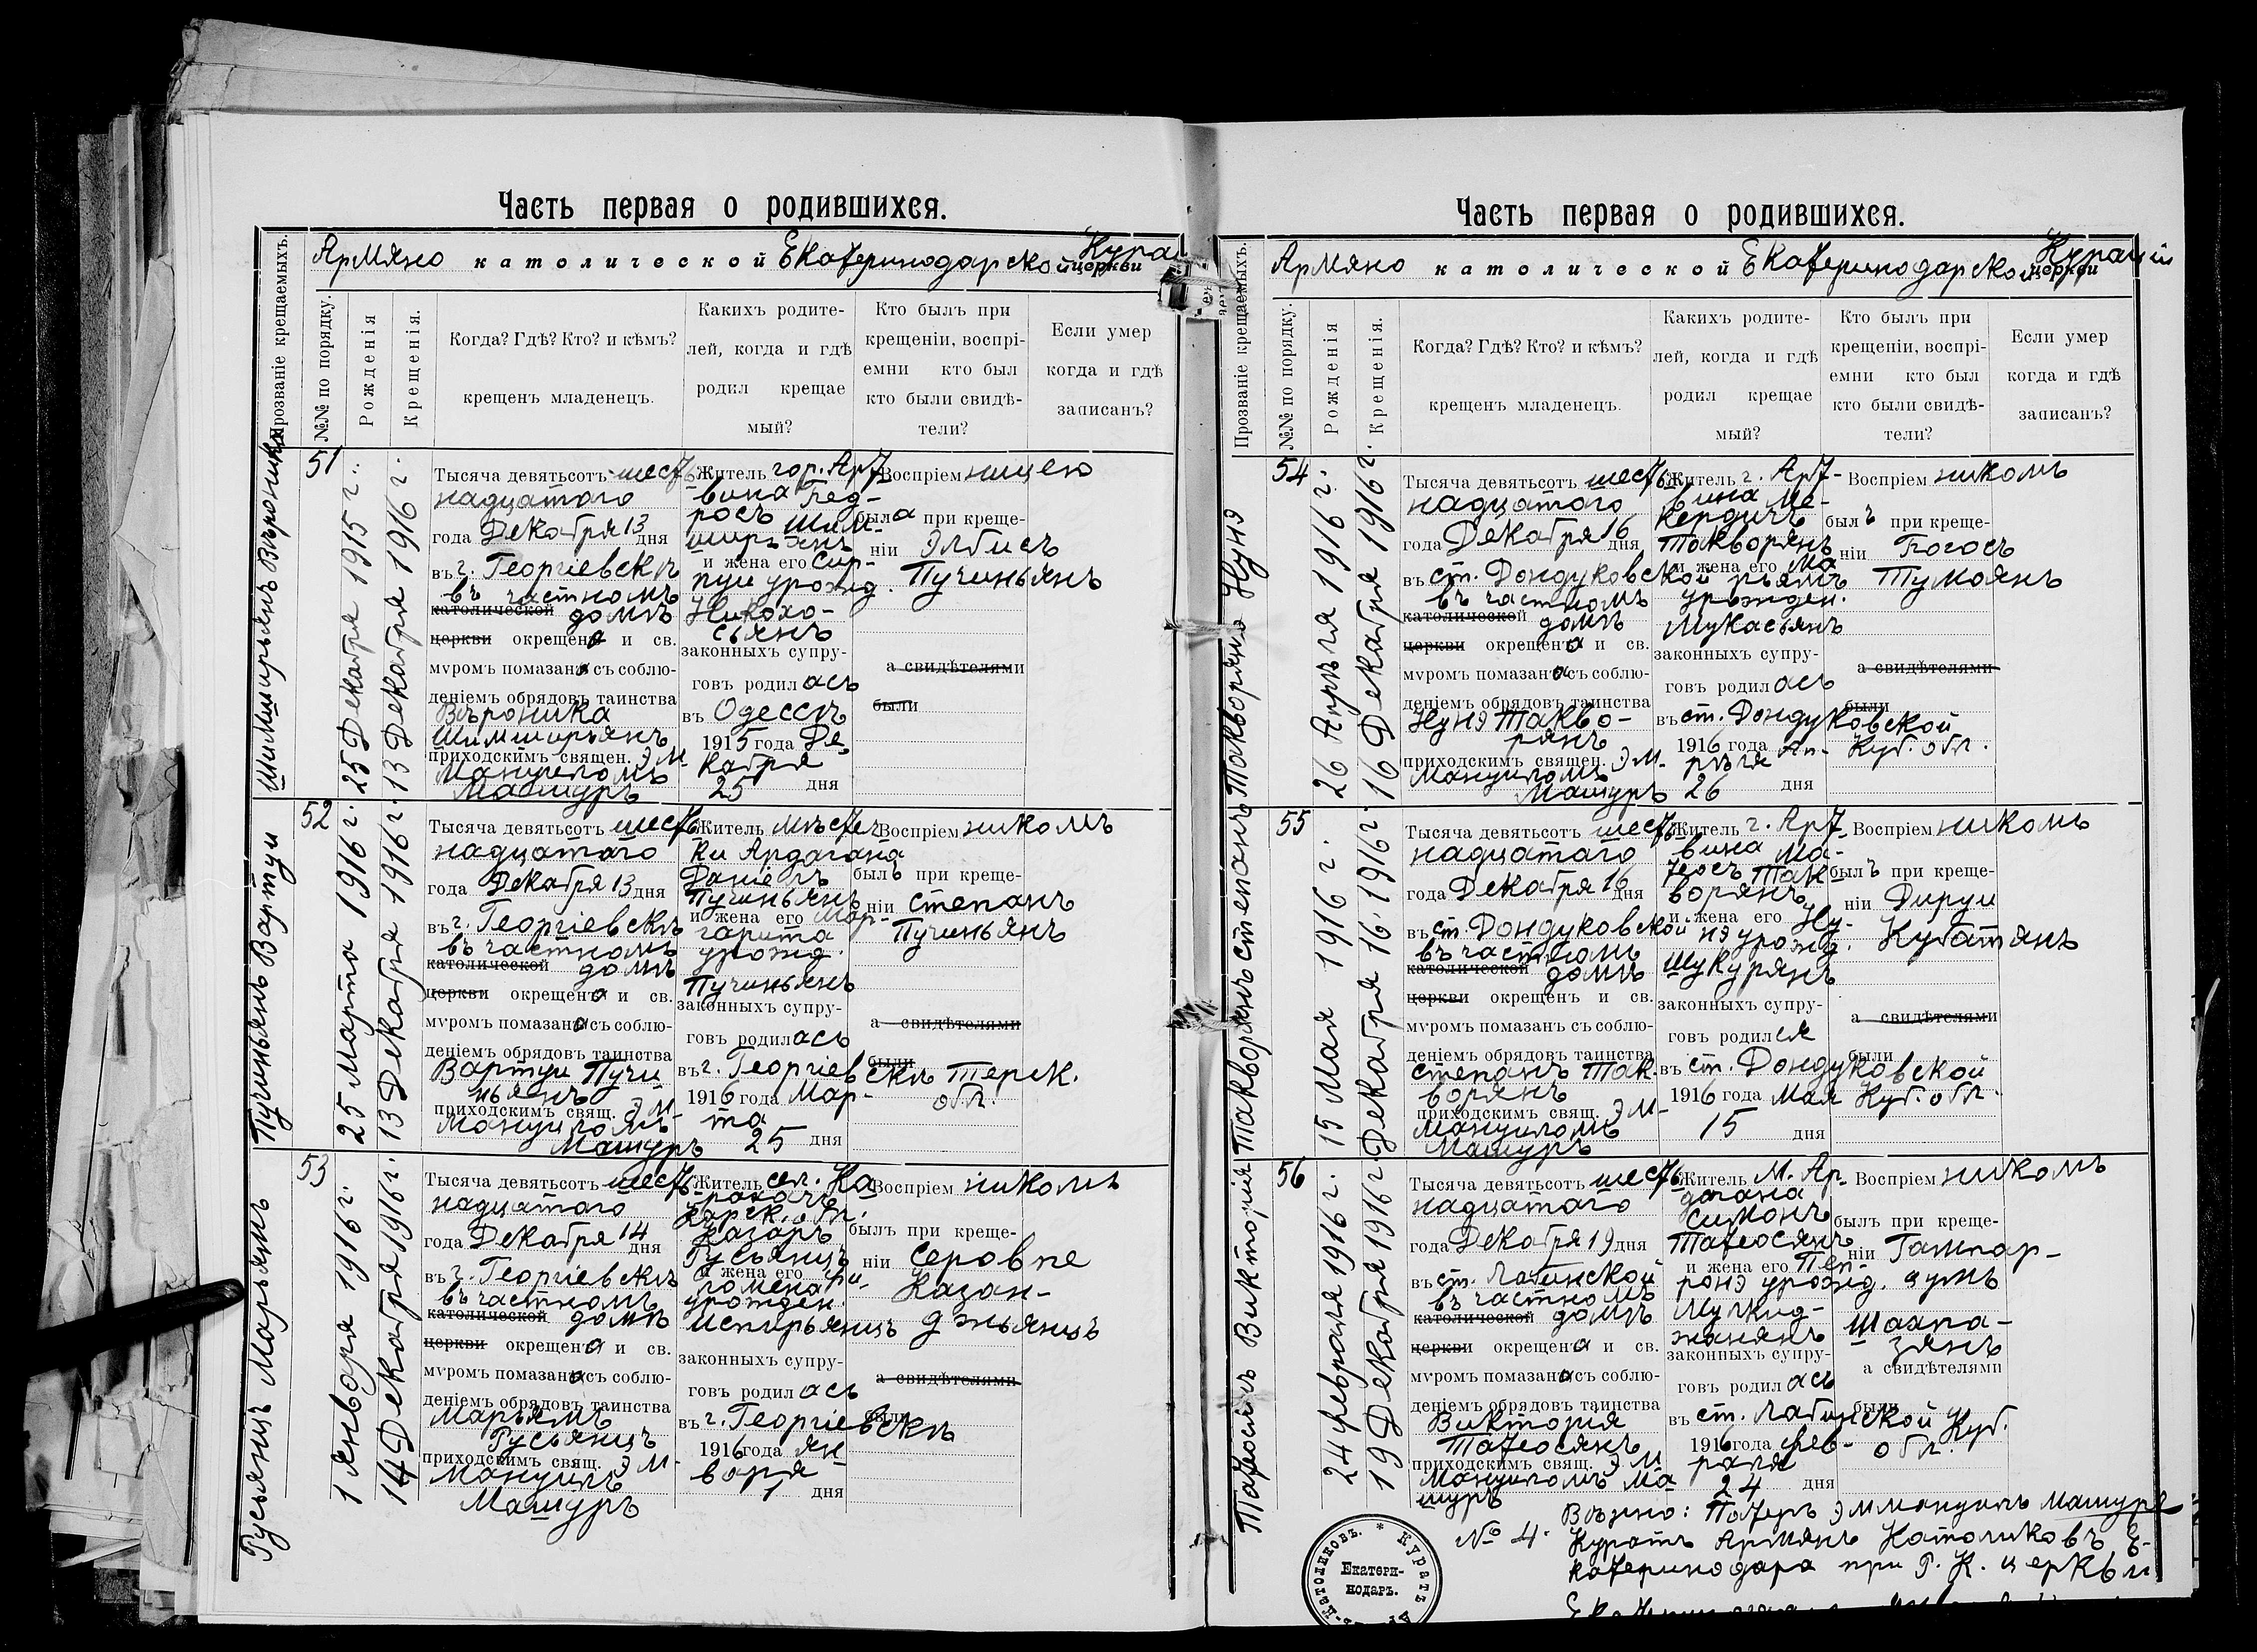 Часть первая о родившихся.
Армяно католической Екатеринодарской церкви Кура
Прозваніе крещаемыхъ.
№№ по порядку.
Рожденія
Крещенія.
Когда? Гдѣ? Кто? и кѣмъ?
крещенъ младенецъ.
Какихъ родите-
лей, когда и гдѣ
родил крещае
мый?
Кто былъ при
крещеніи, воспрі-
емни кто был
кто были свидѣ-
тели?
Если умер
когда и гдѣ
записанъ?
Шимширьянъ Вѣроника
51
25 Декабря 1915 г.
13 Декабря 1916 г
Тысяча девятьсотъ шест
надцатаго
года Декабря 13 дня
въ г. Георгіевскѣ
въ частномъ
католической домѣ
церкви окрещена и св.
мѵромъ помазана съ соблю-
деніемъ обрядовъ таинства
Вѣроника
Шимширьянъ
приходскимъ священ. Эм-
мануиломъ
Машуръ
Житель гор. Арт
вина Пед-
росъ Шим-
ширьянъ
и жена его Сир-
пуи урожд.
Никохо-
сьянъ
законныхъ супру-
говъ родилась
въ Одессѣ
1915 года Де
кабря
25 дня
Воспріемницею
была при креще-
ніи Элбисъ
Пучиньянъ
а свидѣтелями
были
Пучиньянъ Вартуи
52
25 Марта 1916 г.
13 Декабря 1916 г.
Тысяча девятьсотъ шест
надцатаго
года Декабря 13 дня
въ г. Георгіевскѣ
въ частномъ
католической домѣ
церкви окрещена и св.
мѵромъ помазана съ соблю-
деніемъ обрядовъ таинства
Вартуи Пучи
ньянъ
приходскимъ свящ. Эм-
мануиломъ
Машуръ
Житель мѣстеч
ки Ардагана
Даніелъ
Пучиньянъ
и жена его Мар-
гарита
урожд.
Пучиньянъ
законныхъ супру-
говъ родилась
въ г. Георгіев
скѣ Терск.
1916 года Мар-
обл.
та
25 дня
Воспріемникомъ
былъ при креще-
ніи Степанъ
Пучиньянъ
а свидѣтелями
были
Гусьянцъ Марьямъ
53
1 Января 1916 г.
14 Декабря 1916 г.
Тысяча девятьсотъ шест
надцатаго
года Декабря 14 дня
въ г. Георгіевскѣ
въ частномъ
католической домѣ
церкви окрещена и св.
мѵромъ помазана съ соблю-
деніемъ обрядовъ таинства
Марьямъ
Гусьянцъ
приходскимъ свящ. Эм-
мануилъ
Машуръ
Житель сел. Ка
Карск. обл.
Казаръ
Гусьянцъ
и жена его Фи-
ломена
урожден.
Испирьянцъ
законныхъ супру-
говъ родилась
въ г. Георгіевскѣ
1916 года Ян
варя
1 дня
Воспріемникомъ
былъ при креще-
ніи Серовпе
Казан-
джьянцъ
а свидѣтелями
были
Часть первая о родившихся.
Армяно католической Екатеринодарской церкви Кураціи
Прозваніе крещаемыхъ.
№№ по порядку.
Рожденія
Крещенія.
Когда? Гдѣ? Кто? и кѣмъ?
крещенъ младенецъ.
Какихъ родите-
лей, когда и гдѣ
родил крещае
мый?
Кто былъ при
крещеніи, воспрі-
емни кто был
кто были свидѣ-
тели?
Если умер
когда и гдѣ
записанъ?
Такворянъ Нунэ
54
26 Апрѣля 1916 г.
16 Декабря 1916 г.
Тысяча девятьсотъ шест
надцатаго
года Декабря 16 дня
въ ст. Дондуковской
въ частномъ
католической домѣ
церкви окрещена и св.
мѵромъ помазана съ соблю-
деніемъ обрядовъ таинства
Нунэ Такво-
рянъ
приходскимъ священ. Эм-
мануиломъ
Машуръ
Житель г. Арт-
вина Ме-
кердичъ
Такворянъ
и жена его Ма
рьямъ
урожден.
Мукасьянъ
законныхъ супру-
говъ родилась
въ ст. Дондуковской
1916 года Ап- Куб. обл.
рѣля
26 дня
Воспріемникомъ
былъ при креще-
ніи Погосъ
Тумоянъ
а свидѣтелями
были
Такворянъ Степанъ
55
15 Мая 1916 г.
Декабря 16. 1916 г.
Тысяча девятьсотъ шест
надцатаго
года Декабря 16 дня
въ ст. Дондуковской
въ частномъ
католической домѣ
церкви окрещенъ и св.
мѵромъ помазан съ соблю-
деніемъ обрядовъ таинства
Степанъ Так-
ворянъ
приходскимъ свящ. Эм-
мануиломъ
Машуръ
Житель г. Арт-
вина Ма-
теосъ Так
ворянъ
и жена его Ну-
нэ урожд.
Шукурянъ
законныхъ супру-
говъ родился
въ ст. Дондуковской
1916 года Мая Куб. обл.
15 дня
Воспріемникомъ
былъ при креще-
ніи Дируи
Кубатянъ
а свидѣтелями
были
Татеосянъ Викторія
56
24 Февраля 1916 г.
19 Декабря 1916 г.
Тысяча девятьсотъ шест
надцатаго
года Декабря 19 дня
въ ст. Лабинской
въ частномъ
католической домѣ
церкви окрещена и св.
мѵромъ помазана съ соблю-
деніемъ обрядовъ таинства
Викторія
Татеосянъ
приходскимъ свящ. Эм
мануиломъ Ма
шуръ
Житель м. Ар-
дагана
Симонъ
Татеосянъ
и жена его Пеп-
ронэ урожд.
Мулкид-
жанянъ
законныхъ супру-
говъ родилась
въ ст. Лабинской Куб.
1916 года Фев- обл.
раля
24 дня
Воспріемникомъ
былъ при креще-
ніи Гаспар-
Шахпа-
зянъ
а свидѣтелями
были
№ 4.
Вѣрно: Патеръ Эммануилъ Машуръ
Куратъ Армянъ Католиковъ Е-
катеринодара при Р. К. церкви
Екатери-
нодаръ.